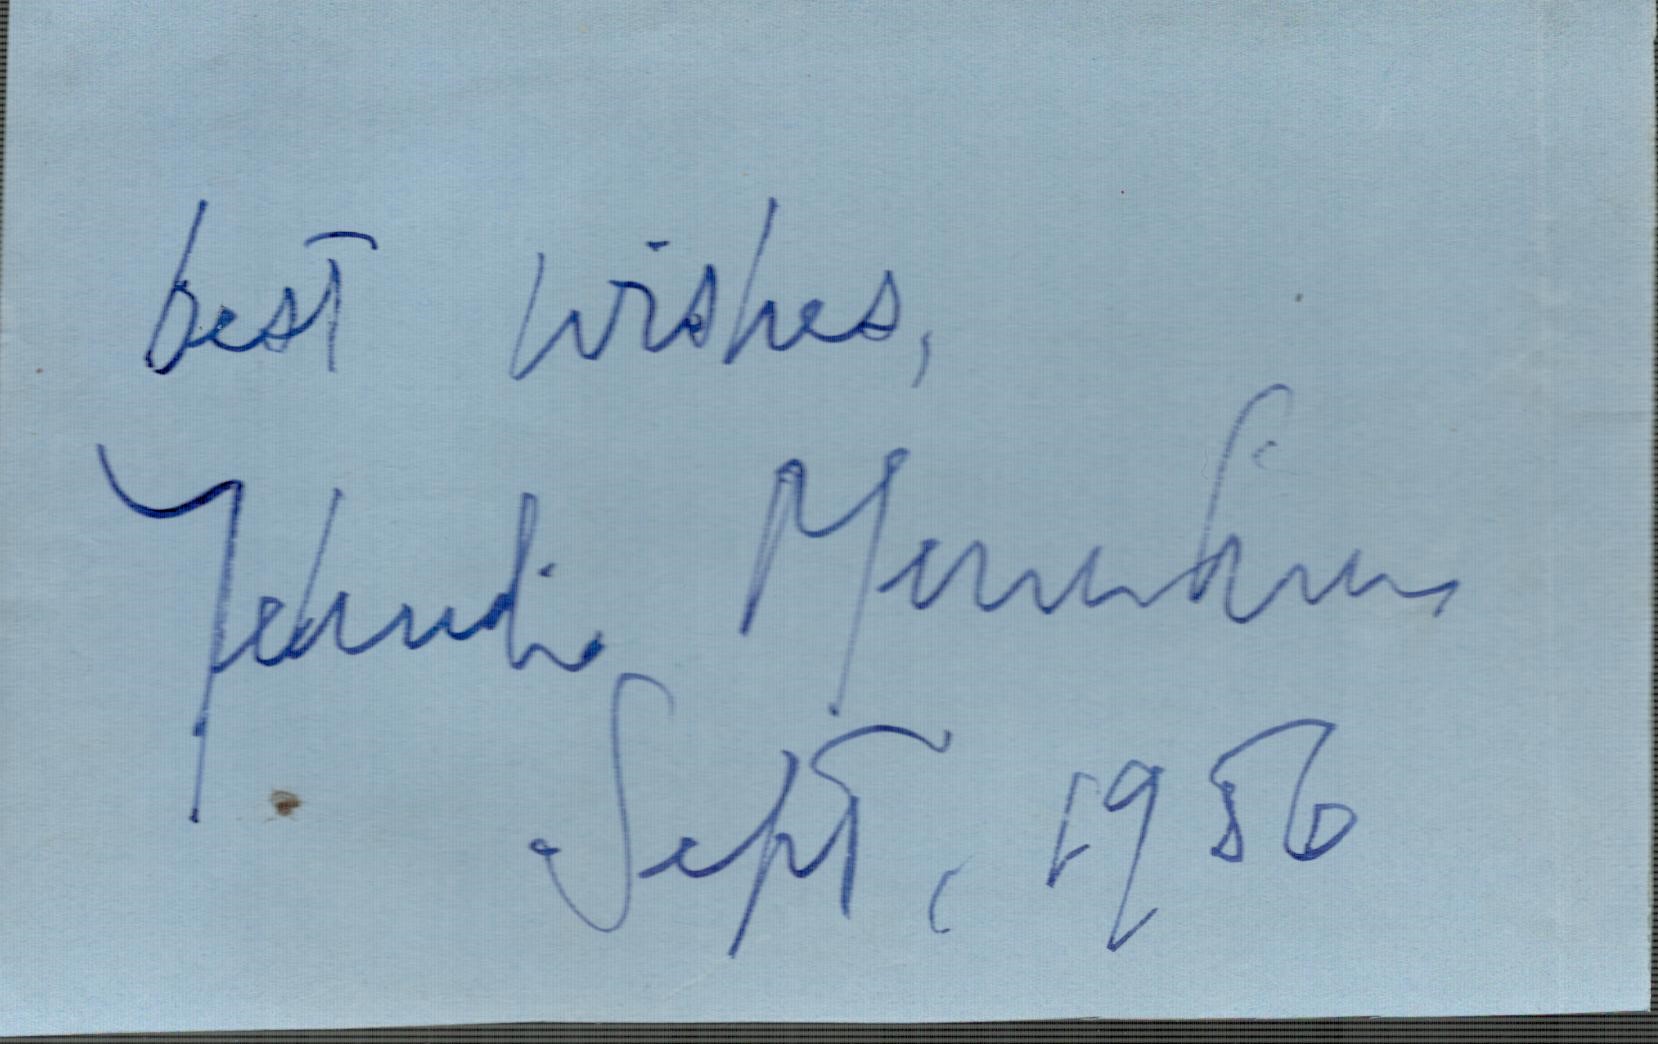 best wishes,
Yehudi Menuhin
Sept, 1956